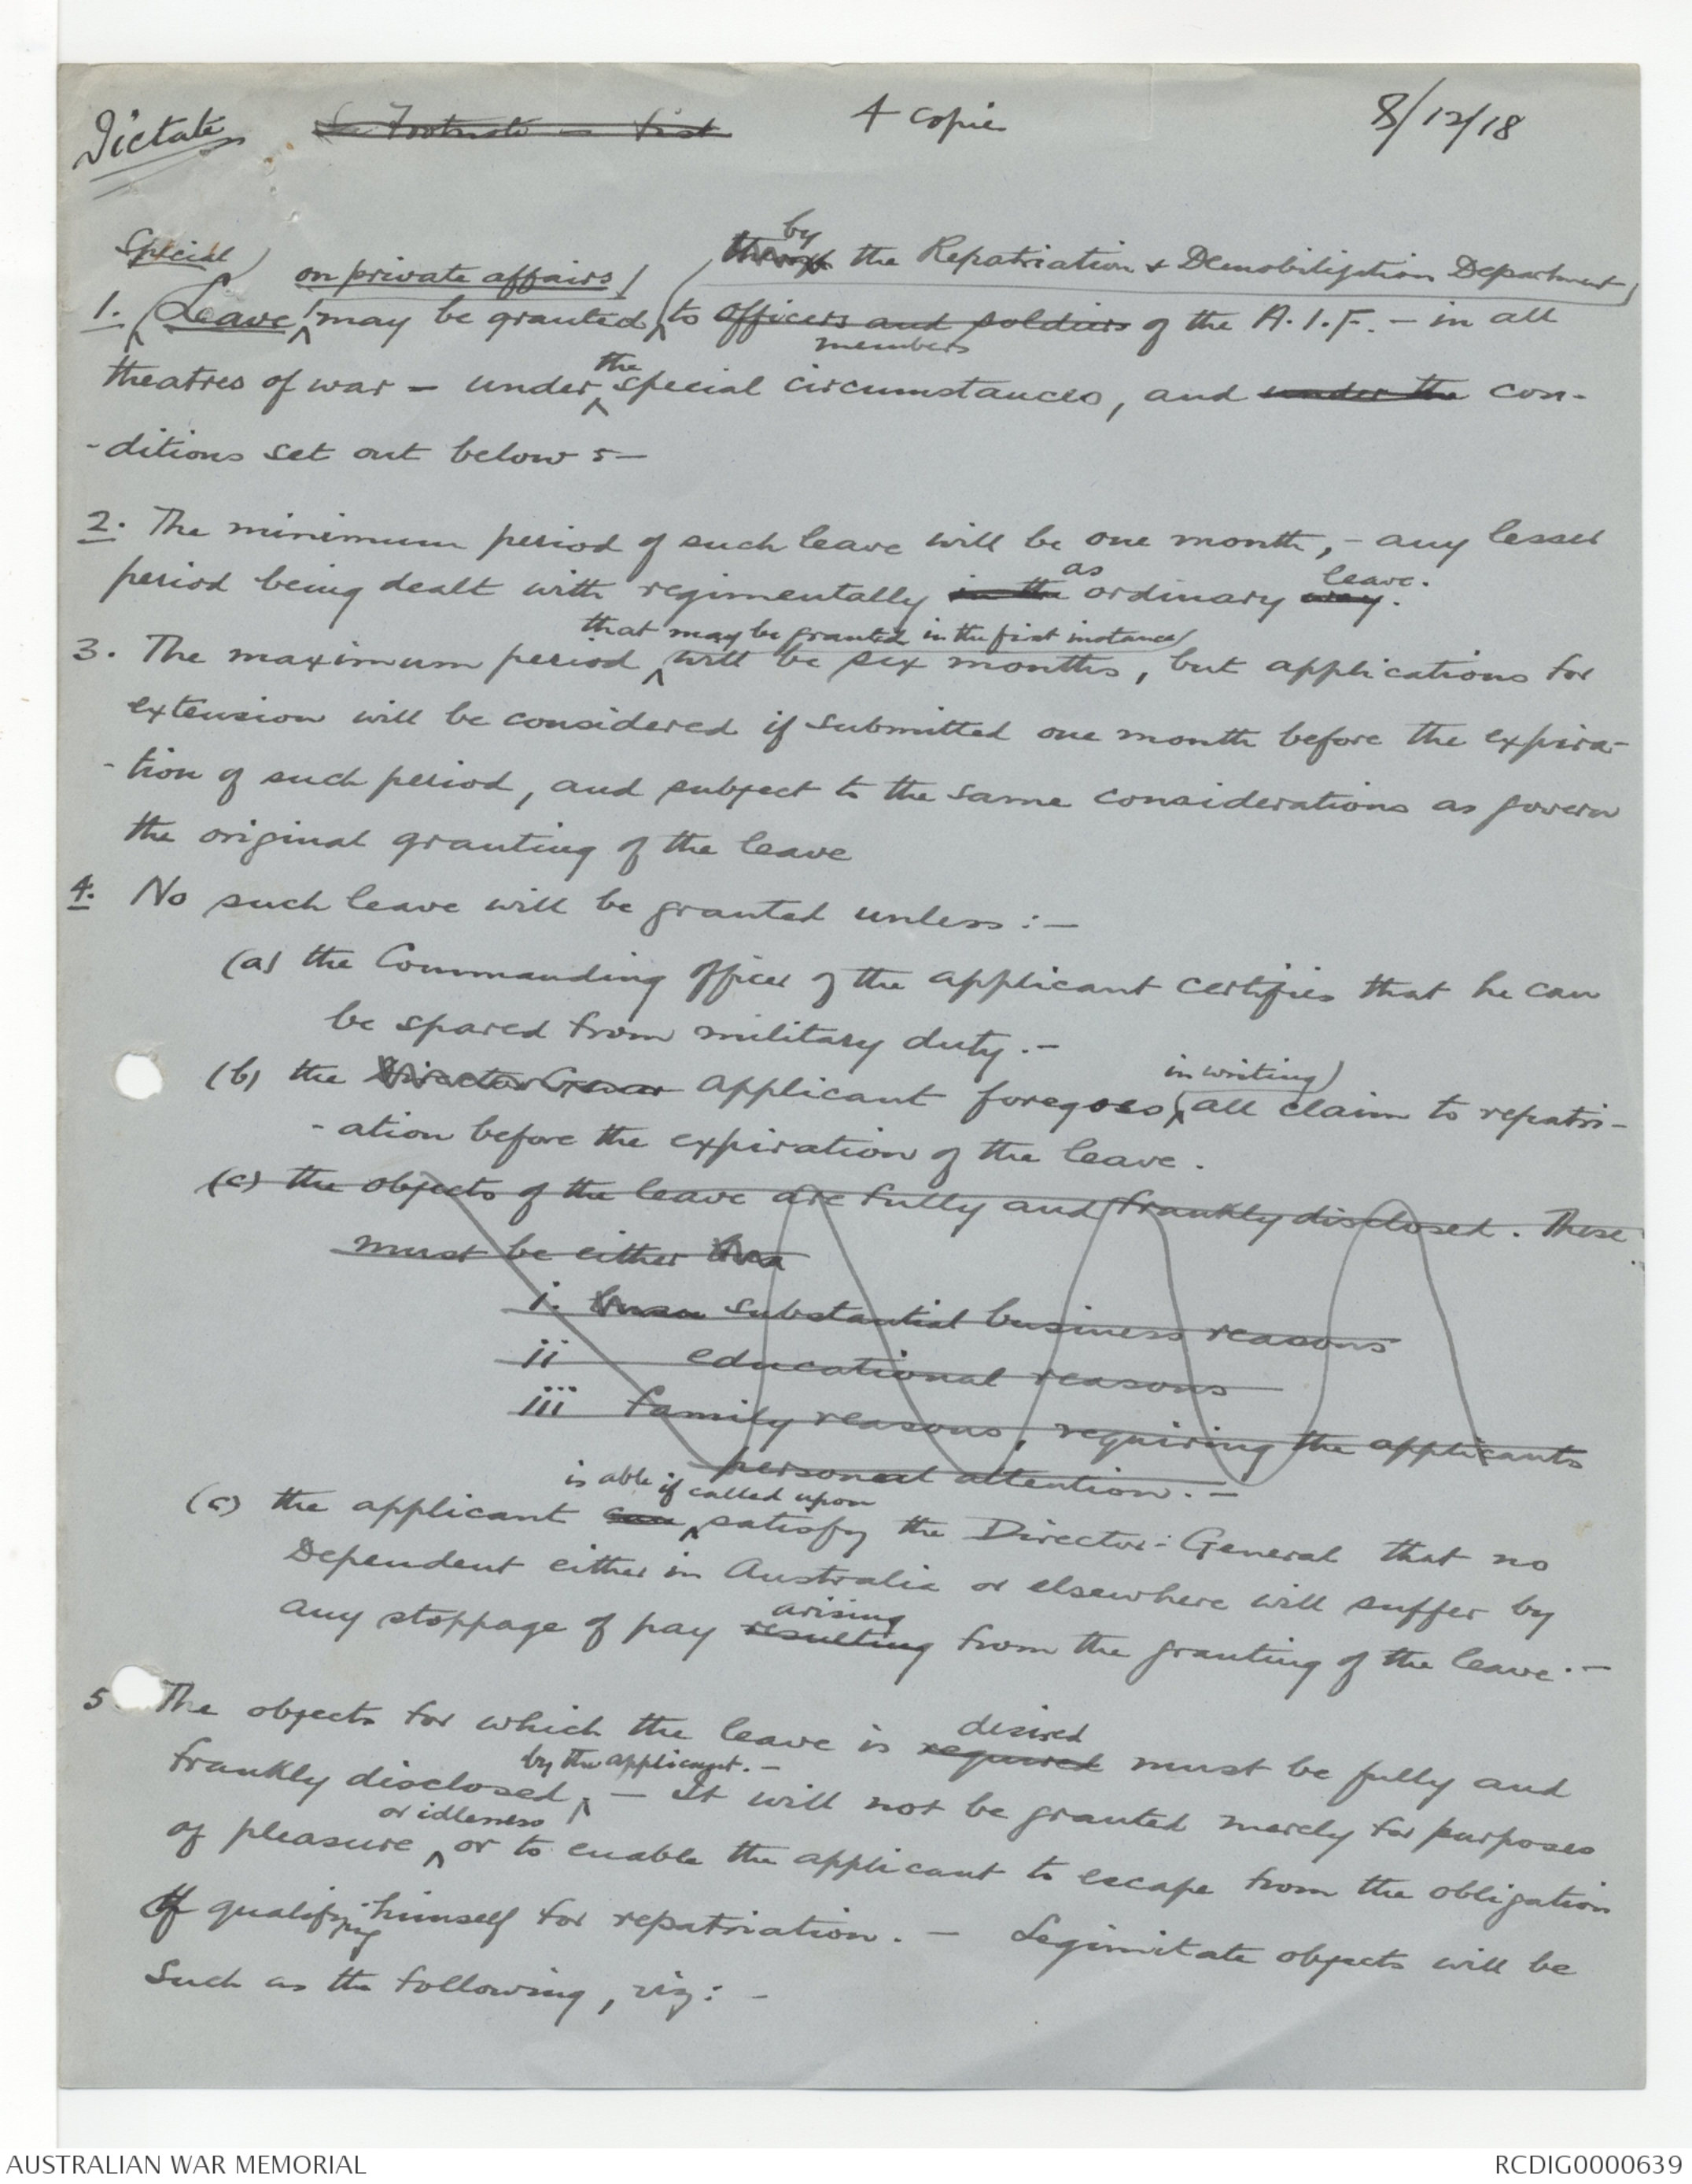 Dictate 4 copies 8/12/18
by
Special on private affairs the Repatriation & Demobilization Department
1. Leave may be granted to officers and soldiers of the A.I.F. - in all
members
the
theatres of war - under special circumstances, and under the con-
-ditions set out below :-
2. The minimum period of such leave will be one month, - any lesser
as leave.
period being dealt with regimentally in the ordinary way.
that may be granted in the first instance
3. The maximum period will be six months, but applications for
extension will be considered if submitted one month before the expira-
-tion of such period, and subject to the same considerations as govern
the original granting of the leave
4. No such leave will be granted unless :-
(a) the Commanding Officer of the applicant certifies that he can
be spared from military duty. -
in writing
(b) the Director General applicant foregoes all claim to repatri-
-ation before the expiration of the leave.
(c) the objects of the leave are fully and frankly disclosed. These
must be either
i. substantial business reasons
ii educational reasons
iii family reasons, requiring the applicants
personal attention. -
is able if called upon
(c) the applicant can satisfy the Director-General that no
Dependent either in Australia or elsewhere will suffer by
arising
any stoppage of pay resulting from the granting of the leave. -
desired
5 The objects for which the leave is required must be fully and
by the applicant. -
frankly disclosed. - It will not be granted merely for purposes
or idleness
of pleasure or to enable the applicant to escape from the obligation
of qualifying himself for repatriation. - Legimitate objects will be
such as the following, viz: -
AUSTRALIAN WAR MEMORIAL RCDIG0000639